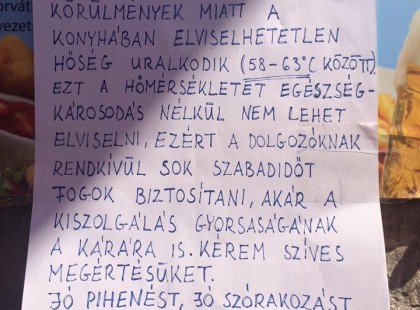 KÖRÜLMÉNYEK MIATT A
KONYHÁBAN ELVISELHETETLEN
HŐSÉG URALKODIK (58-63°C KÖZÖTT).
EZT A HŐMÉRSÉKLETET EGÉSZSÉG-
KÁROSODÁS NÉLKÜL NEM LEHET
ELVISELNI, EZÉRT A DOLGOZÓKNAK
RENDKÍVÜL SOK SZABADIDŐT
FOGOK BIZTOSÍTANI, AKÁR A
KISZOLGÁLÁS GYORSASÁGÁNAK
A KÁRÁRA IS. KÉREM SZÍVES
MEGÉRTÉSÜKET.
JÓ PIHENÉST, JÓ SZÓRAKOZÁST